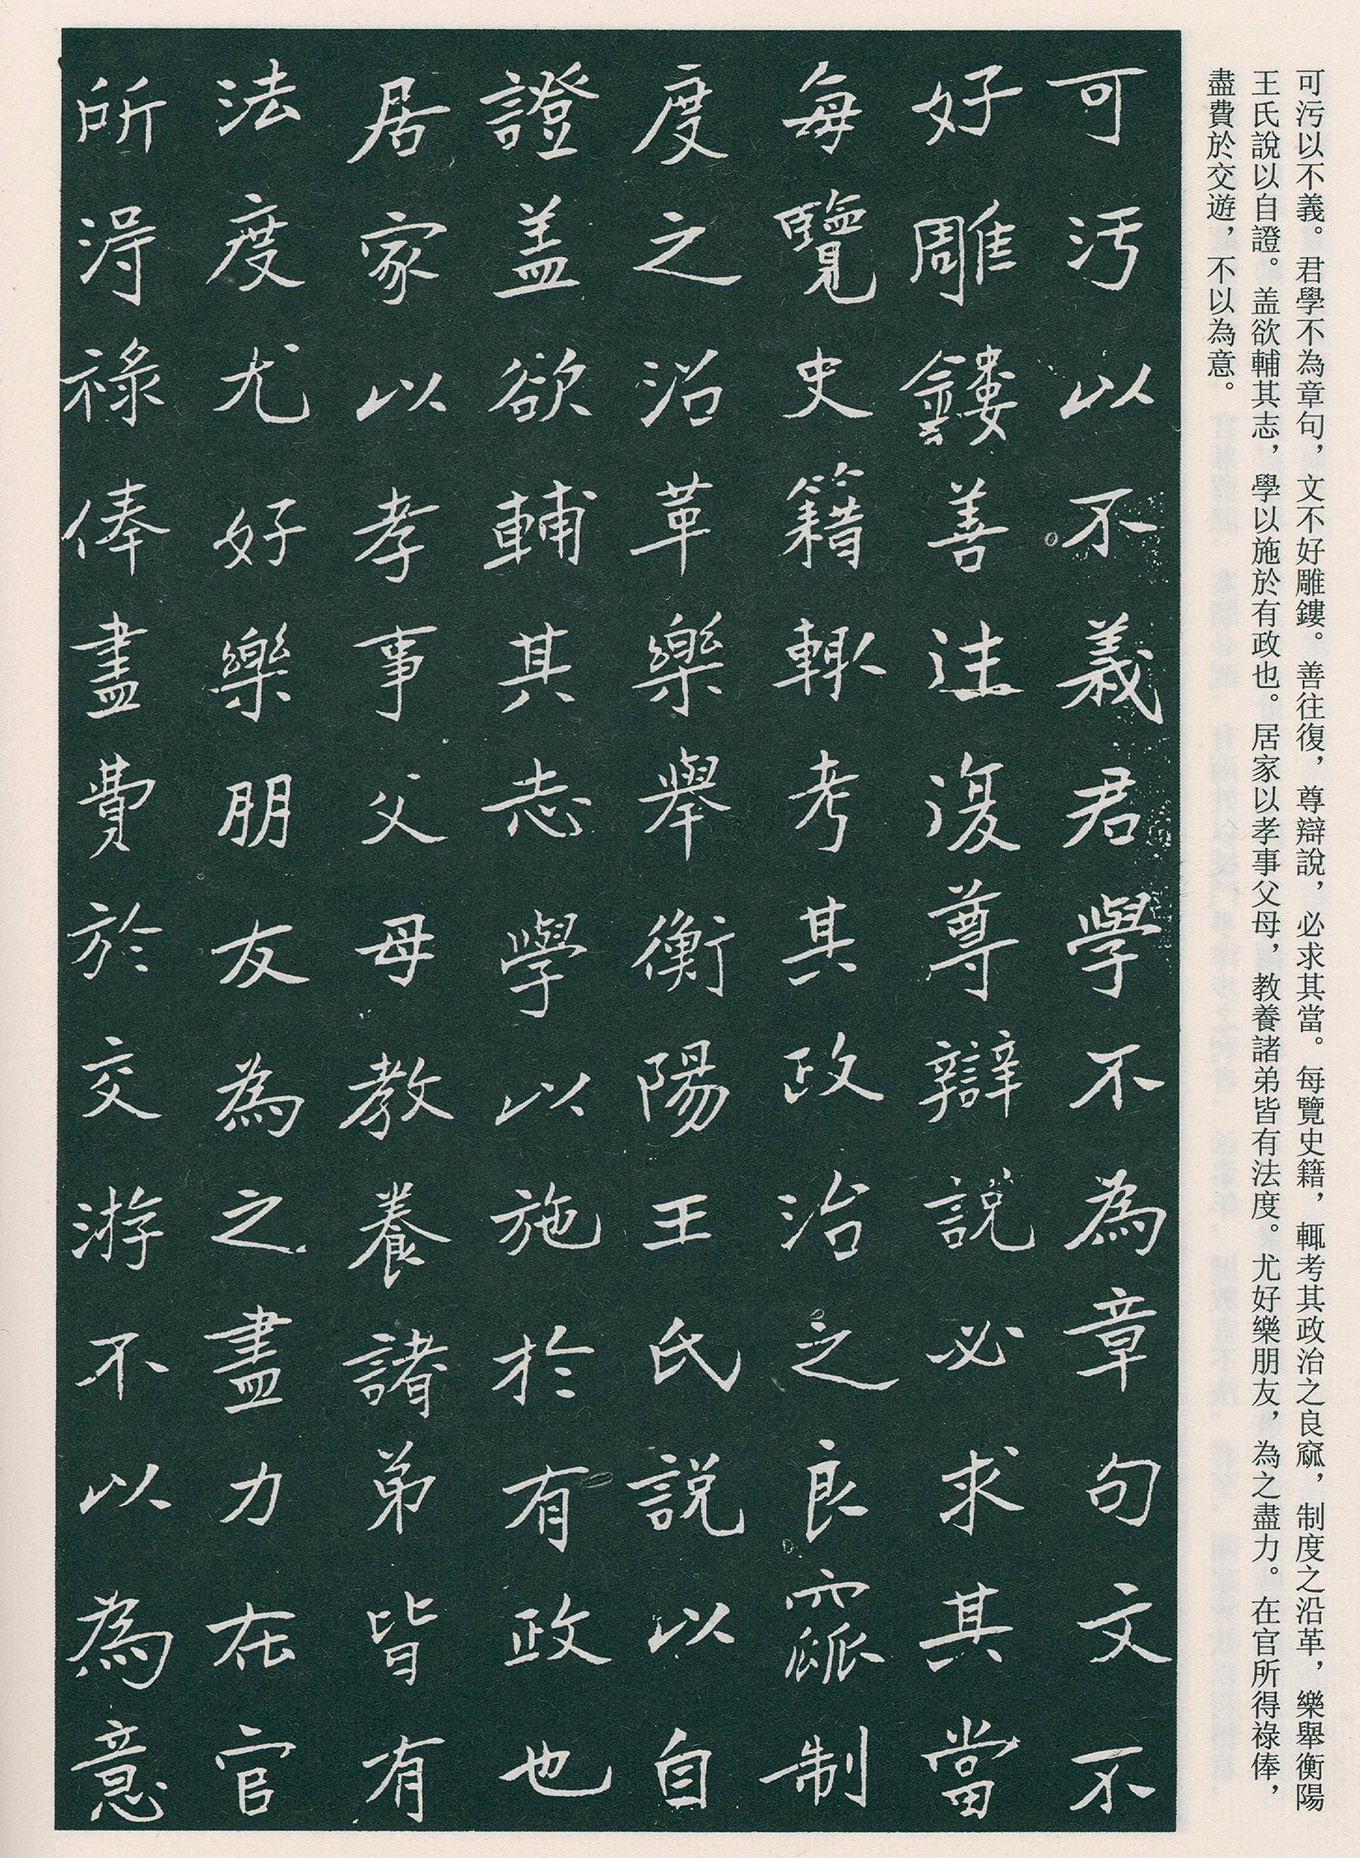 可污以不義。君學不為章句，文不好雕鏤。善往復，尊辯說，必求其當。每覽史籍，輒考其政治之良窳，制度之沿革，樂舉衡陽
王氏說以自證。盖欲輔其志，學以施於有政也。居家以孝事父母，教養諸弟皆有法度。尤好樂朋友，為之盡力。在官所得祿俸，
盡費於交遊，不以為意。
可污以不義君學不為章句文不
好雕鏤善往復尊辯說必求其當
每覽史籍輒考其政治之良窳制
度之沿革樂舉衡陽王氏說以自
證盖欲輔其志學以施於有政也
居家以孝事父母教養諸弟皆有
法度尤好樂朋友為之盡力在官
所得祿俸盡費於交游不以為意